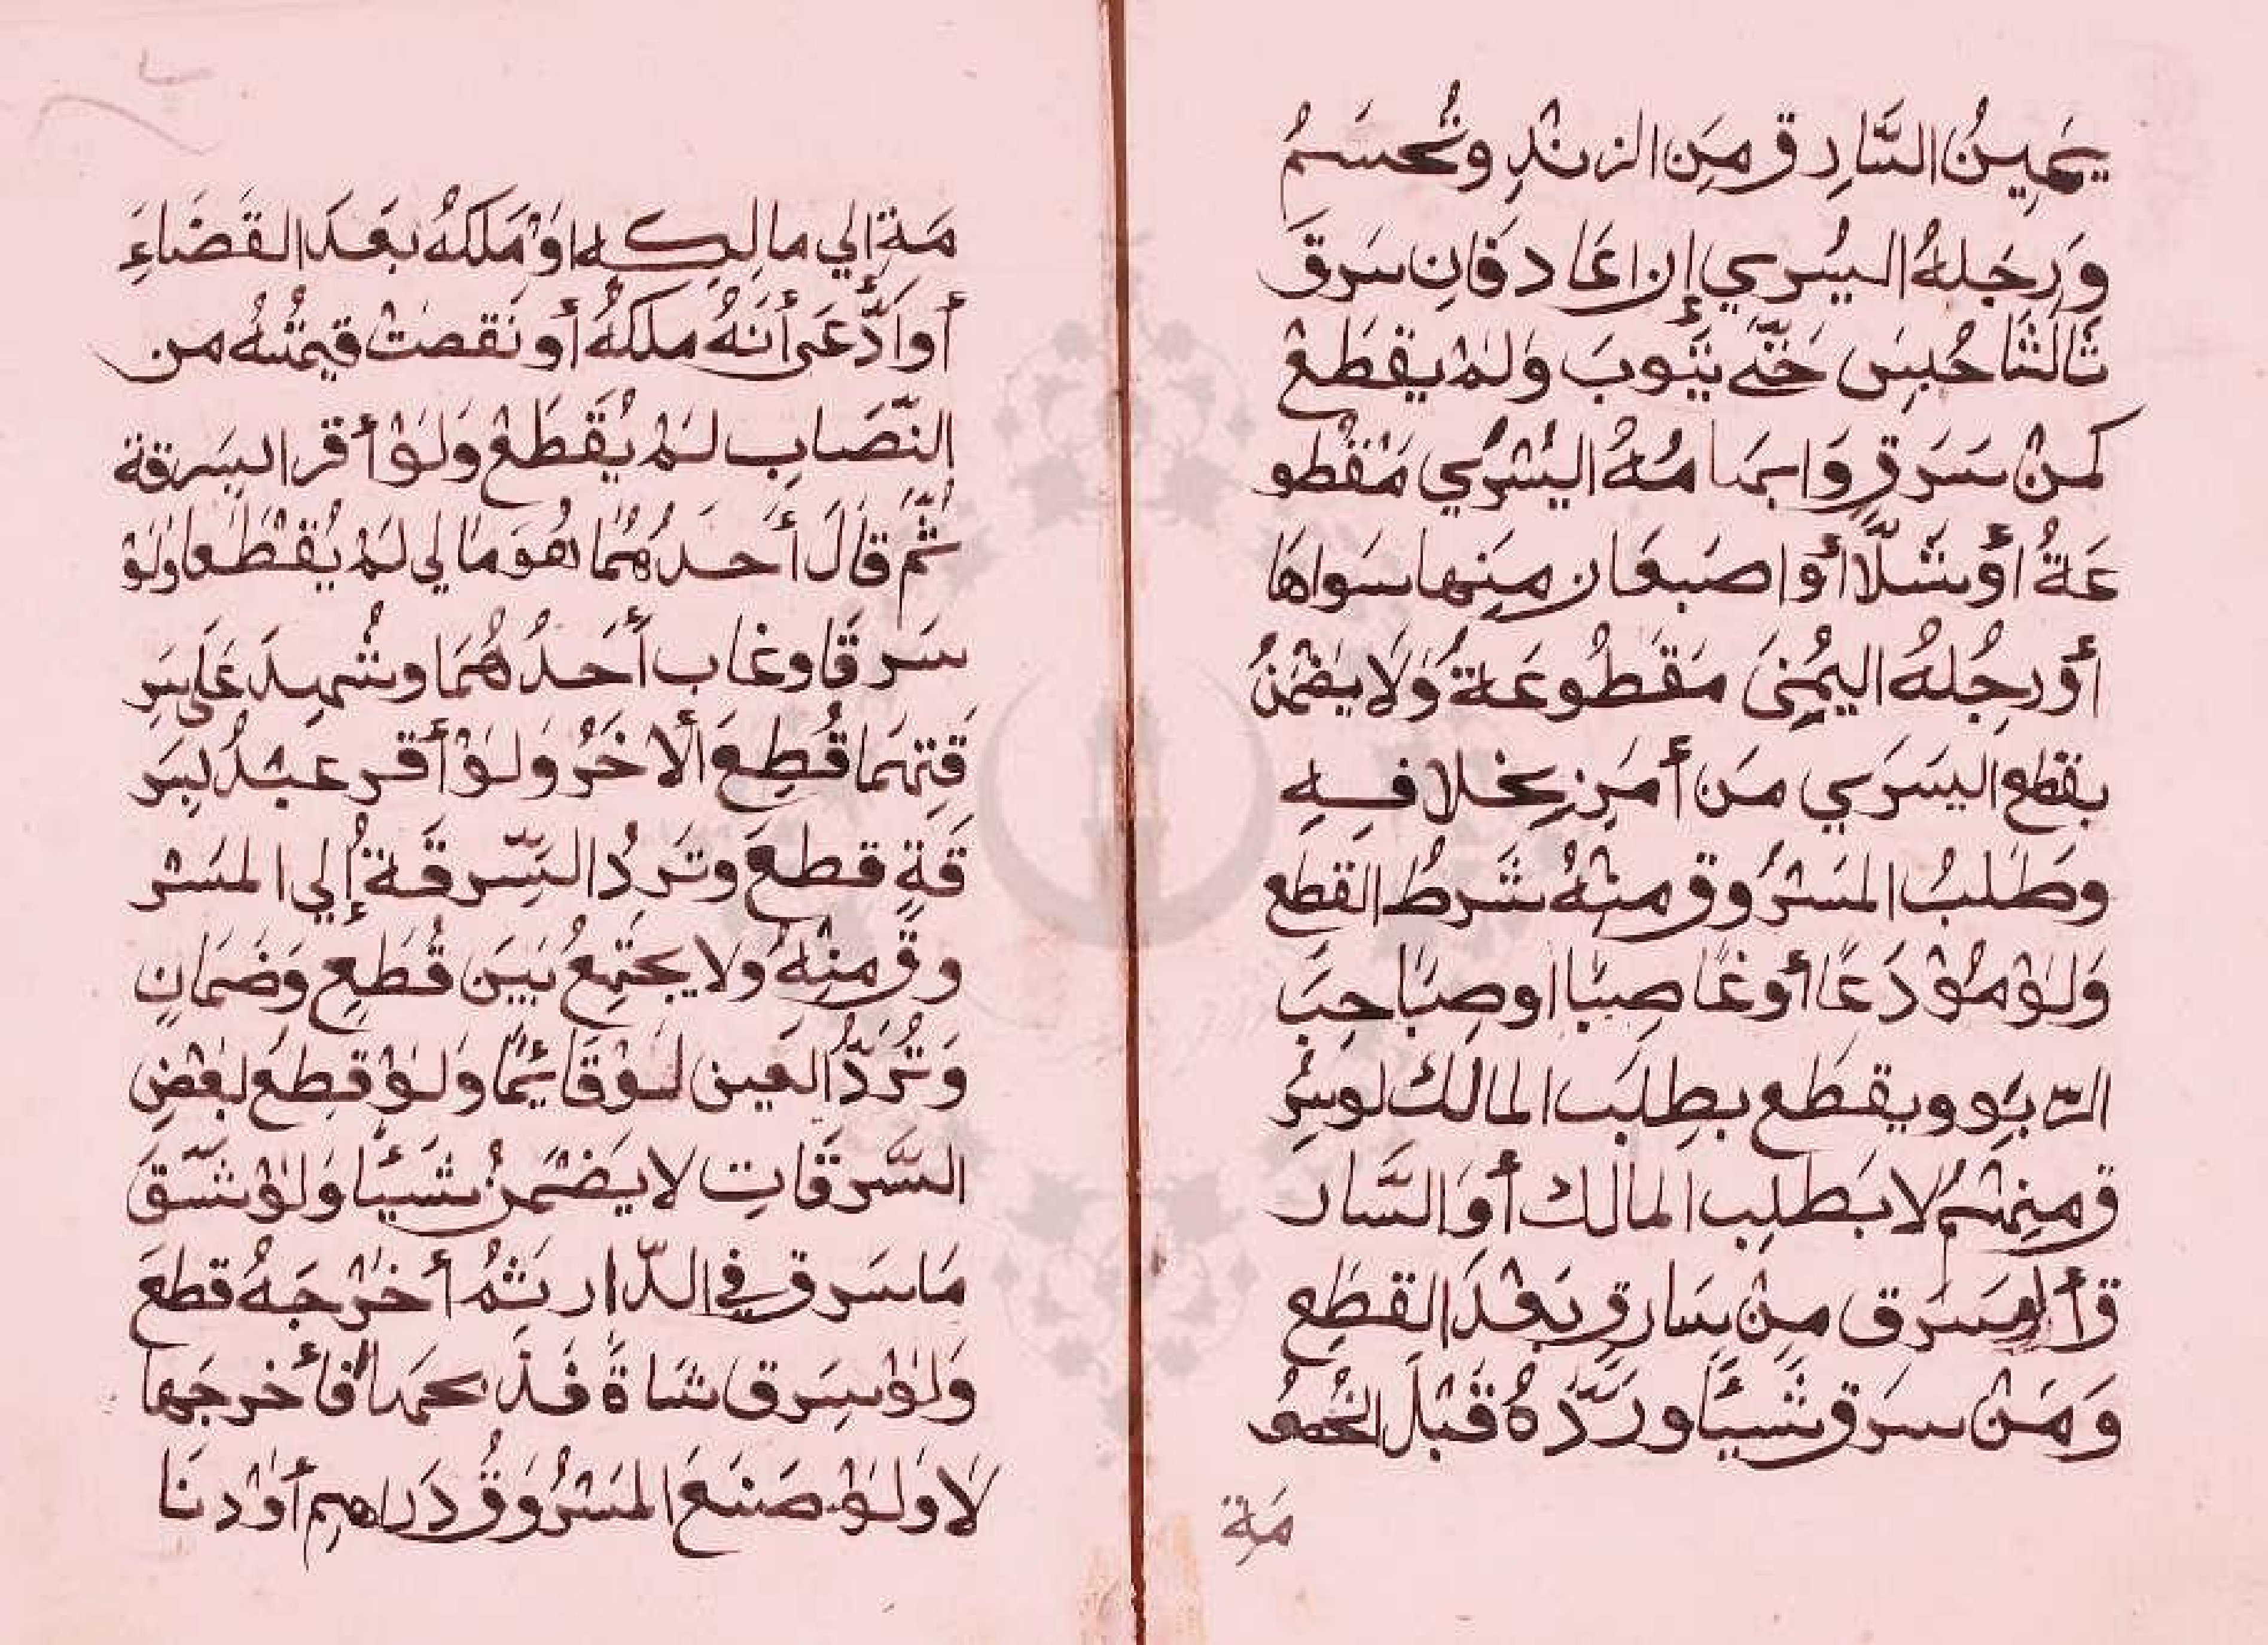 يَمِينُ السَّارِق مِن الزنْدِ وتُحسَمُ
وَرِجَلهُ اليُسُري إن اعَاد فَانِ سَرقَ
ثَالثًا حُبِسَ حَتّي يَتَوبَ وَلمْ يقطَعْ
كمنْ سَرَقٍ وَابهَامُهُ اليُسْرُي مَقْطو
عَةُ أوْ شَلّا أوْ اصَبعَان مِنِها سَواهَا
أوْ رِجُلهُ اليُمِنىَ مَقَطُوعَة وَلَا يضْمْنُ
بقطع اليسَرَي مَن أمَرِ بخلافِهِ
وطَلبُ المَسْرُوق مِنْهُ شَرطُ القَطع
وَلَوْ مُوْدَعًا أوغَاصِبًا اوصِبَاحِبَ
الرّبَو ويقطَع بطِلَب المالك لو سُرِ
ق مِنهمْ لا بَطلِب المالك أوَ السَّار
ق أو سَرَق مِنْ سَارقِ بَعْدَ القطَعِ
وَمَنْ سَرق شَيئًا وردَّهُ قَبْلَ الخُصُو
مَة
مَة إلي مالِكِه اوْ مَلَكهُ بَعَدَ القَضَاءِ
أو ادَّعَى أنَهُ ملكهُ أو نَقصَتْ قيمتُهُ من
النّصَابِ لمْ يُقَطَعْ وَلَوْ أقر السَرِقة
ثمّ قَالَ أَحَدُهُمَا هُوَ مَالي لمْ يُقْطَعا ولوْ
سَرقَا وغَاب أَحَدُهُمَا وشُهِدَ عَلَى سَرِ
قَتِهمَا قُطِعَ ألاخَرُ وَلَوْ أقر عبْدُ بسَر
قَةٍ قطعَ وتَردُ السّرقَة إُلي المَسْر
وقِ مِنْهُ وَلا يجْتَمِعُ بَينَ قُطَعِ وَضَمَانٍ
وَتُرَدُّ العَين لَوْ قَائِمًا وَلوْ قِطعَ لبَعْضِ
السَّرقَاتِ لا يَضْمَنُ شَيئًا وَلَوْ شَقّ
مَاسَرق في الدّار ثمُ أخْرَجَهُ قطعَ
وَلوْ سَرق شَاةَ فَذَبحَها فأخرجَها
لا وَلوْ صَنَعَ المَسْرُوقُ دَرَاهِم أوْ دنَا